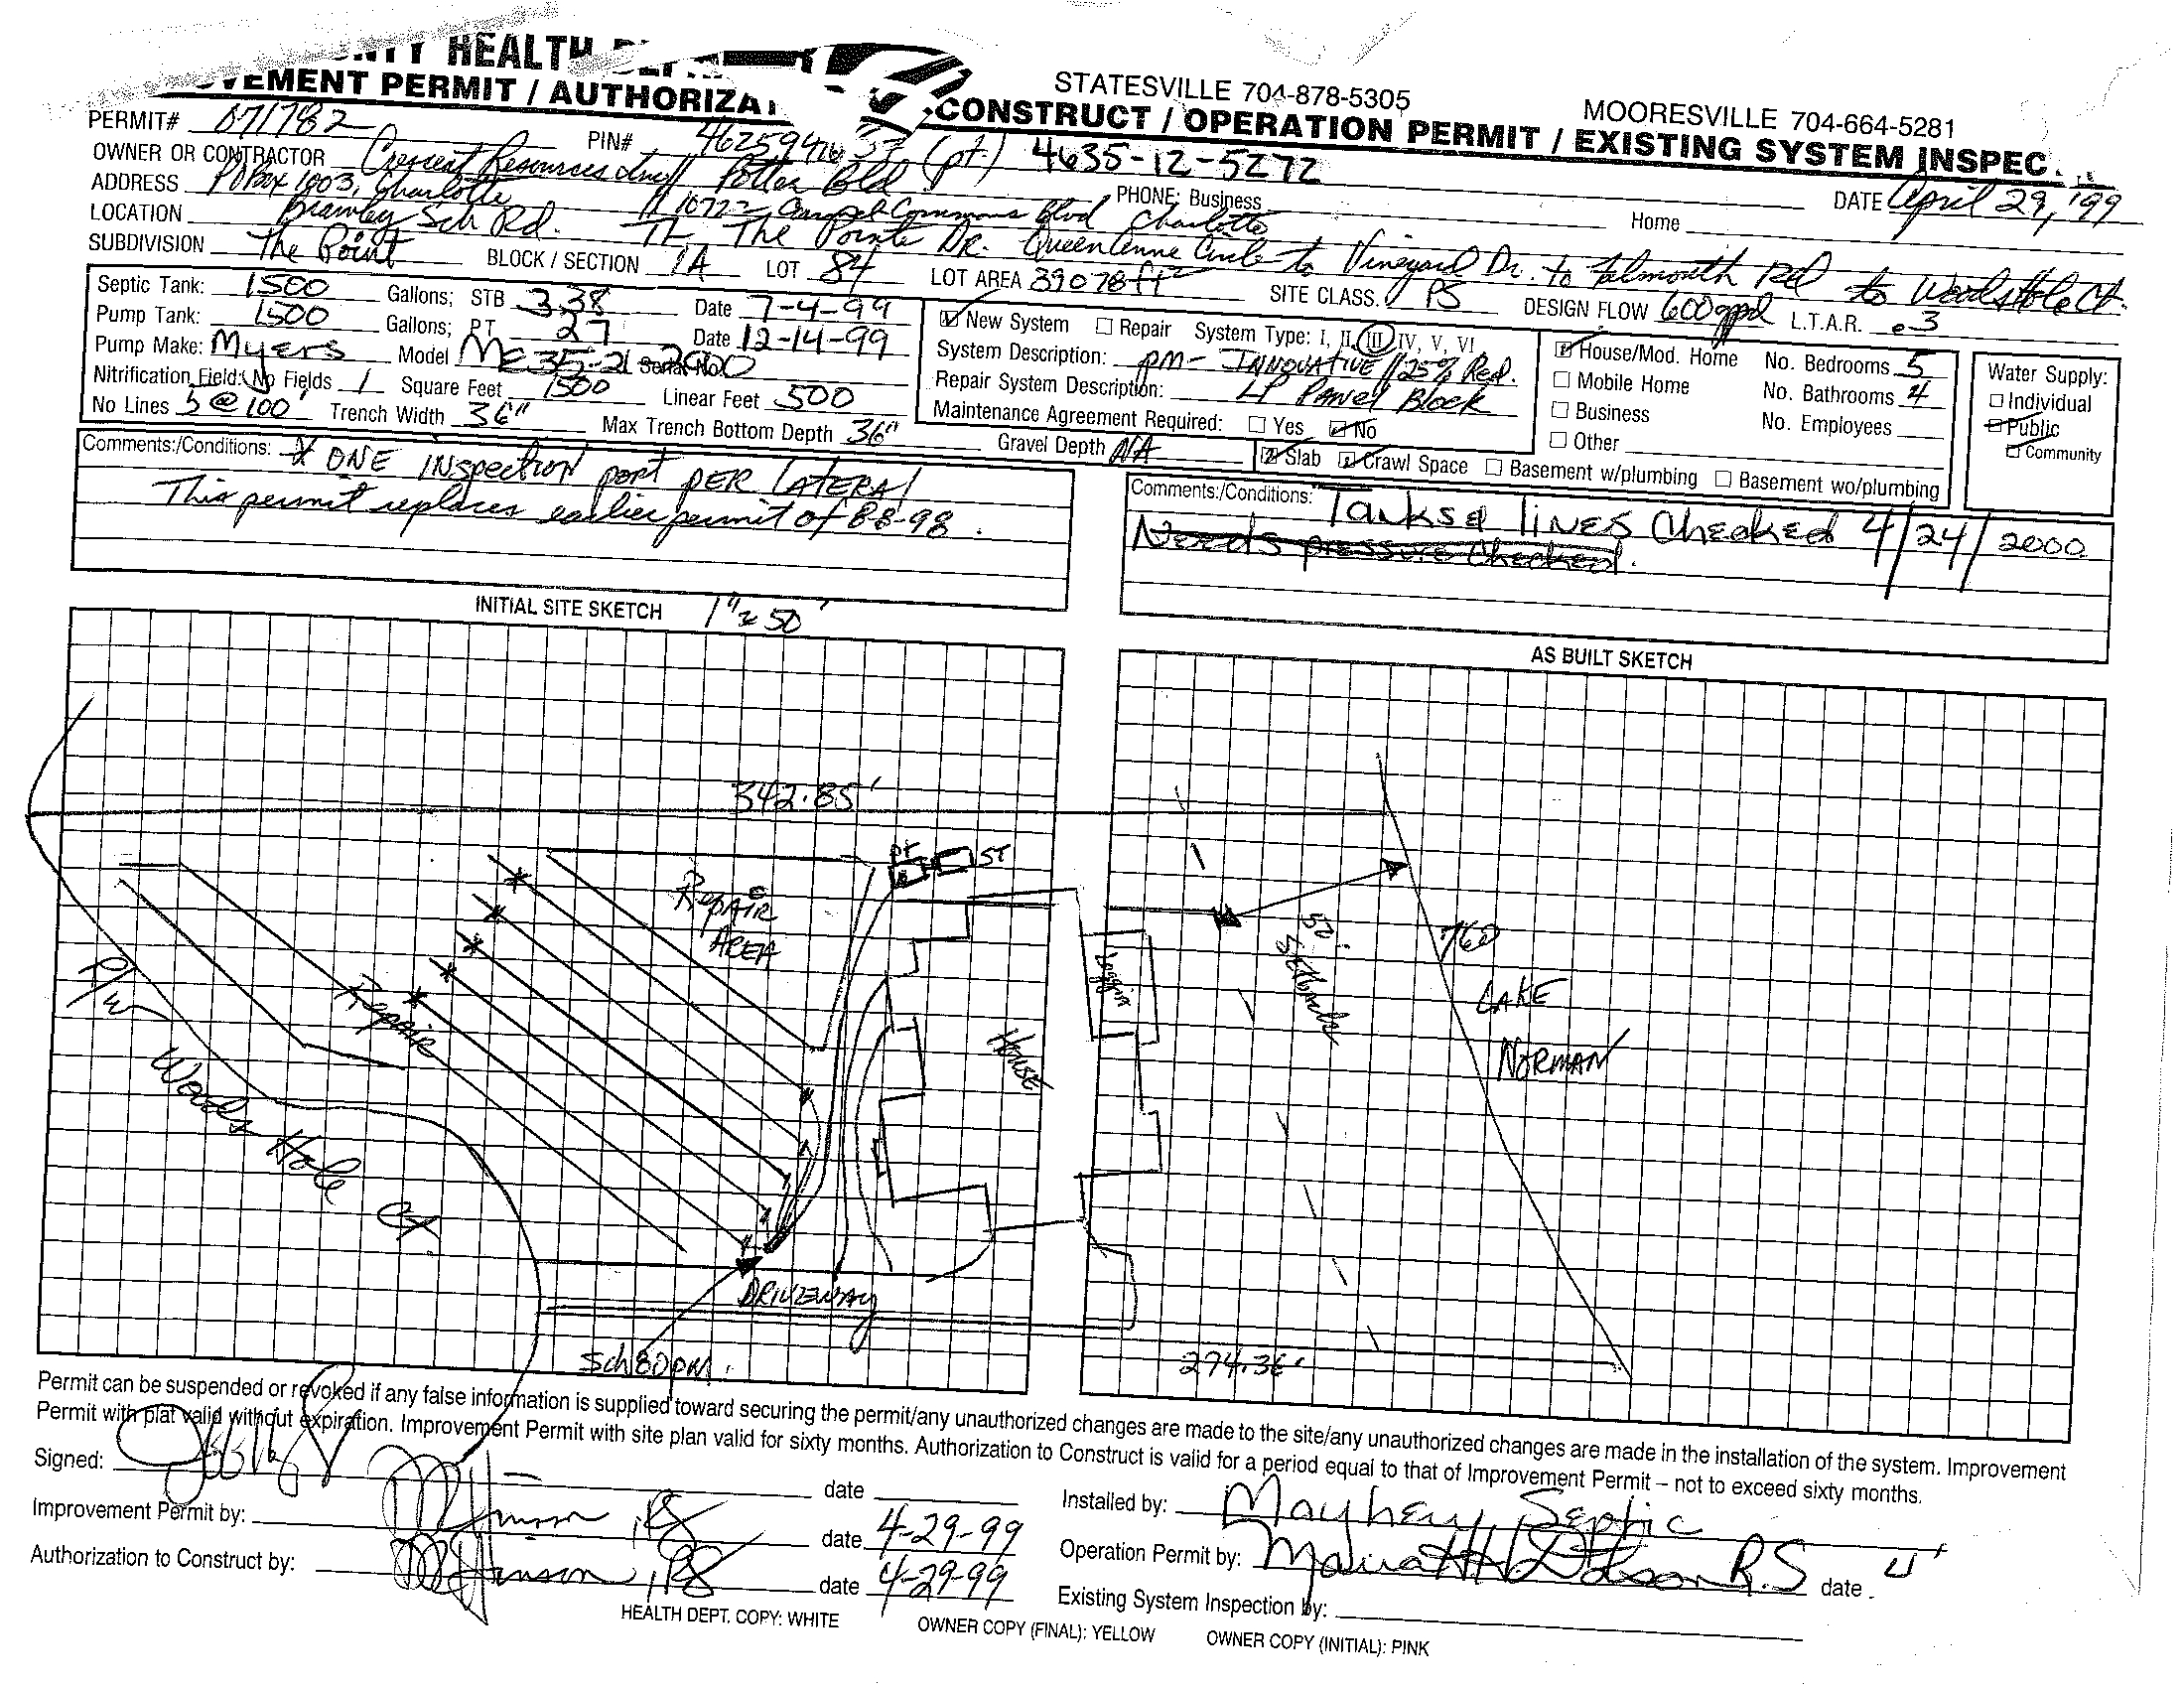 NTY HEALTH DEPT
VEMENT PERMIT / AUTHORIZAT CONSTRUCT / OPERATION PERMIT / EXISTING SYSTEM INSPEC
STATESVILLE 704-878-5305
MOORESVILLE 704-664-5281
PERMIT# 071782 PIN# (pt.) 4635-12-5272
OWNER OR CONTRACTOR Crescent Resources Inc // Potter Bld PHONE: Business Home DATE April 29, '99
ADDRESS PO Box 1003, Charlotte // 10722 Carmel Commons Blvd Charlotte
LOCATION Brawley Sch Rd. TL The Pointe Dr. Queen Anne Circle to Vineyard Dr. to Falmouth Rd to Woods Hole Ct.
SUBDIVISION The Point BLOCK / SECTION 1A LOT 84 LOT AREA 39078 ft² SITE CLASS. PS DESIGN FLOW 600gpd L.T.A.R. .3
Septic Tank: 1500 Gallons; STB 338 Date 7-4-99
Pump Tank: 1500 Gallons; PT 27 Date 12-14-99
Pump Make: Myers Model Serial No.
Nitrification Field: No Fields 1 Square Feet 1500 Linear Feet 500
No Lines 5 @ 100' Trench Width 36" Max Trench Bottom Depth 36" Gravel Depth NA
New System Repair System Type: I, II, III, IV, V, VI
System Description: PM- INNOVATIVE // 25% Red.
Repair System Description: LP Panel Block
Maintenance Agreement Required: Yes No
House/Mod. Home No. Bedrooms 5
Mobile Home No. Bathrooms 4
Business No. Employees
Other
Slab Crawl Space Basement w/plumbing Basement wo/plumbing
Water Supply:
Individual
Public
Community
Comments:/Conditions: * ONE INspection port PER LATERAl
This permit replaces earlier permit of 8-8-98.
Comments:/Conditions: Tanks & lINES Checked 4/24/2000
Needs pressure checked.
INITIAL SITE SKETCH 1" = 50'
AS BUILT SKETCH
342.85'
PT ST
REPAIR
AREA
Repair
R/W
Woods Hole Ct.
HOUSE
Loggia
50' Setback
760
LAKE
NORMAN
DRIVEWAY
Sch 80 PM.
274.36'
Permit can be suspended or revoked if any false information is supplied toward securing the permit/any unauthorized changes are made to the site/any unauthorized changes are made in the installation of the system. Improvement
Permit with plat valid without expiration. Improvement Permit with site plan valid for sixty months. Authorization to Construct is valid for a period equal to that of Improvement Permit – not to exceed sixty months.
Signed: date
Improvement Permit by: date 4-29-99
Authorization to Construct by: date 4-29-99
Installed by: Mayhew Septic
Operation Permit by: R.S date
Existing System Inspection by:
HEALTH DEPT. COPY: WHITE OWNER COPY (FINAL): YELLOW OWNER COPY (INITIAL): PINK